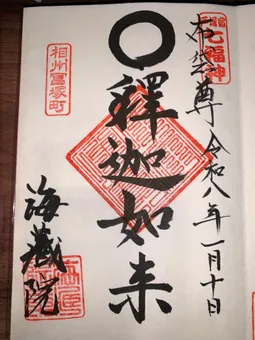 七福神
布袋尊 令和八年一月十日
釋迦如来
相州富塚町
海藏院